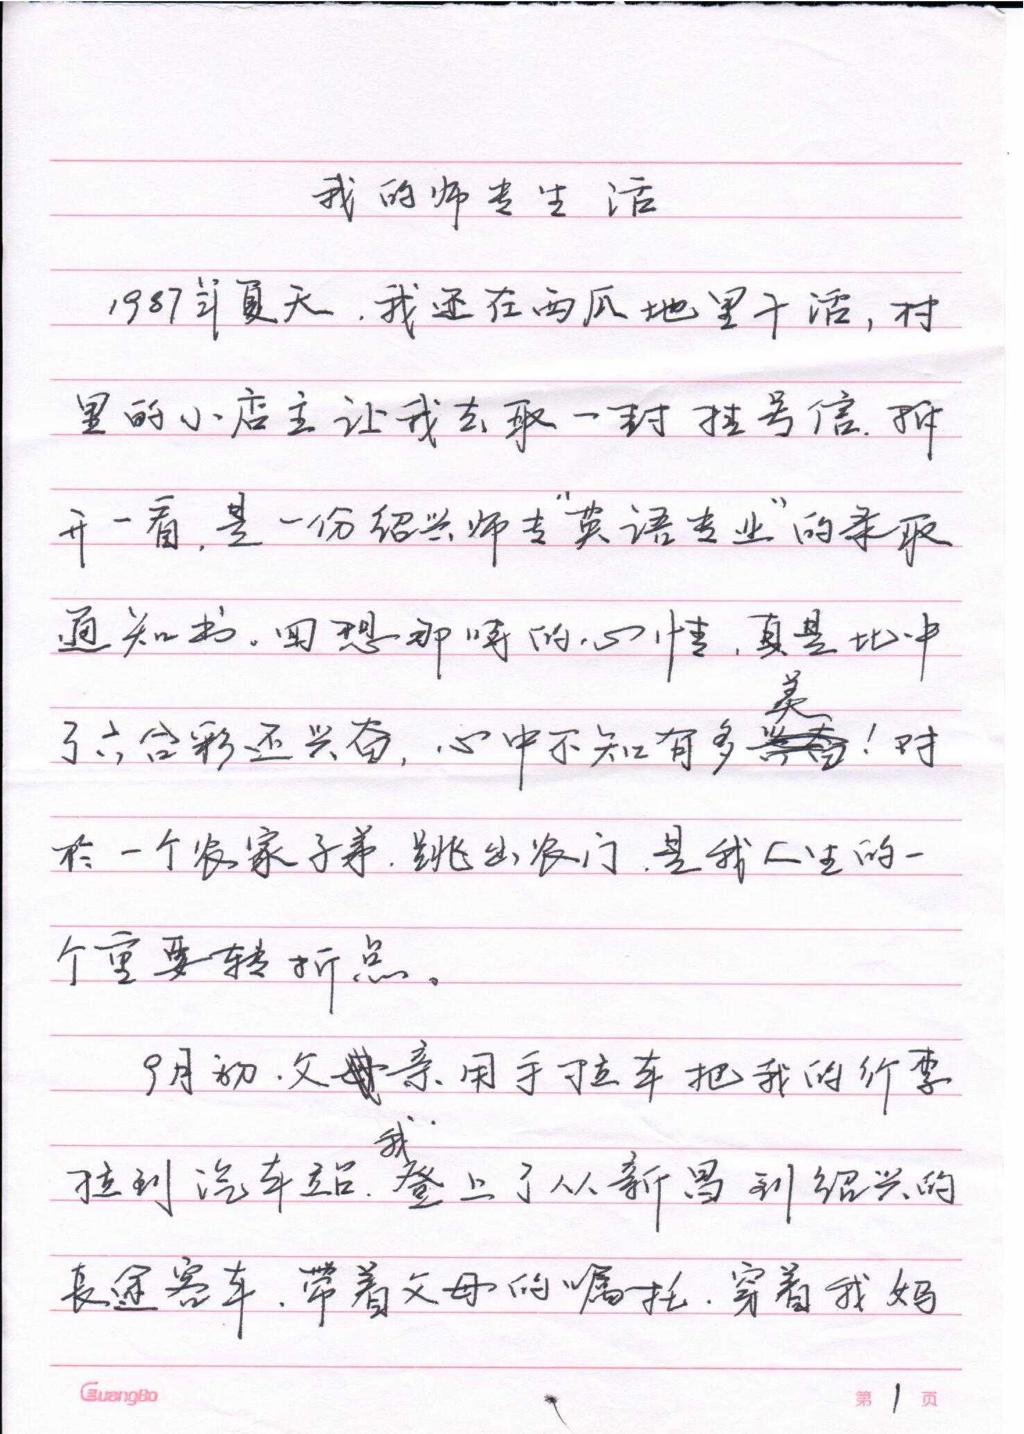 我的师专生活
1987年夏天，我还在西瓜地里干活，村
里的小店主让我去取一封挂号信，拆
开一看，是一份绍兴师专“英语专业”的录取
通知书。回想那时的心情，真是比中
了六合彩还兴奋，心中不知有多美！对
于一个农家子弟，跳出农门，是我人生的一
个重要转折点。
9月初，父亲用手拉车把我的行李
拉到汽车站，我登上了从新昌到绍兴的
长途客车，带着父母的嘱托，穿着我妈
GuangBo
第1页